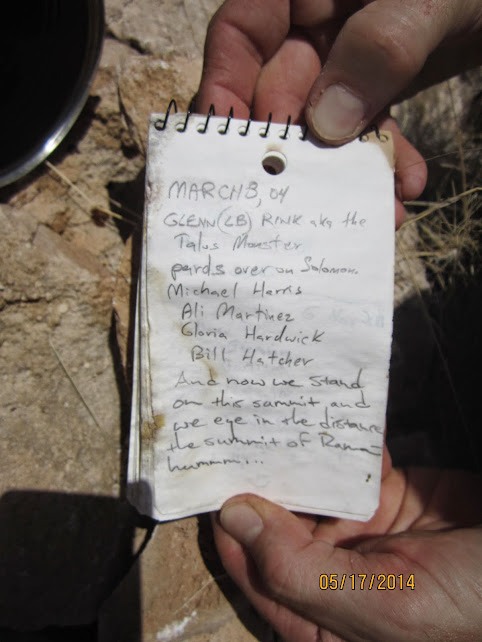 MARCH 13, 04
GLENN (LB) RINK aka the
Talus Monster
pards over on Solomon.
Michael Harris
Ali Martinez
Gloria Hardwick
Bill Hatcher
And now we stand
on this summit and
we eye in the distance
the summit of Rama
hummm...
05/17/2014